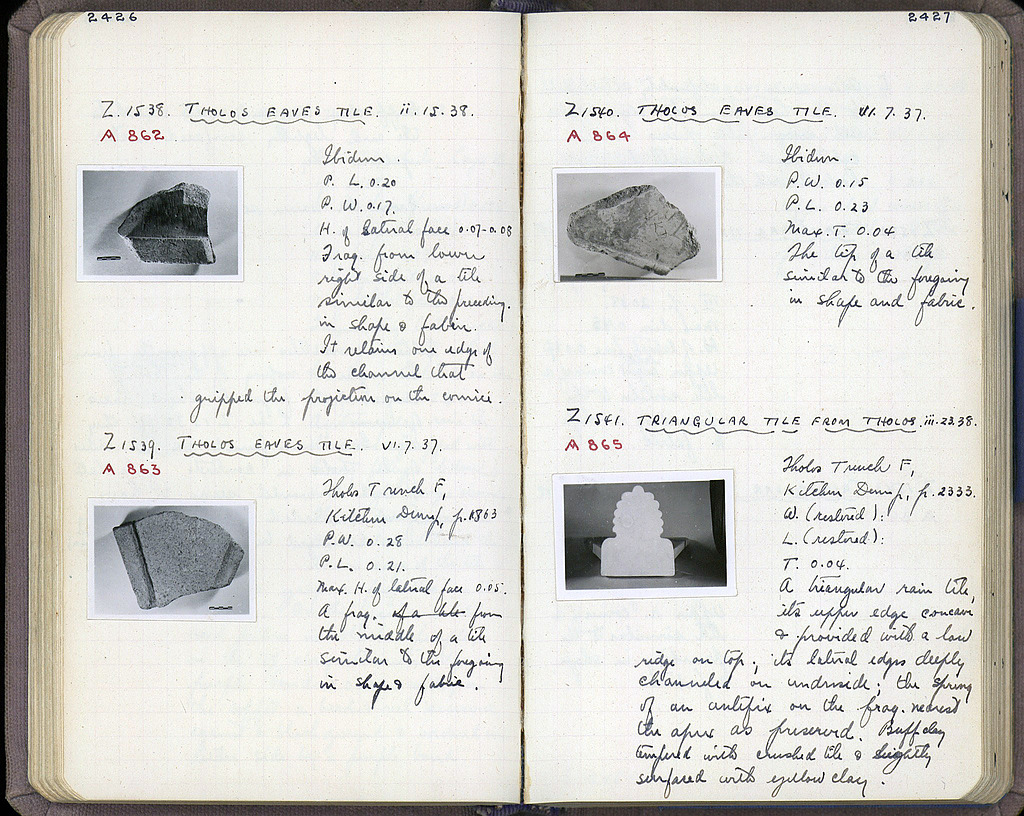 2426
Z.1538. THOLOS EAVES TILE. ii.15.38.
A 862
Ibidem.
P. L. 0.20
P. W. 0.17.
H. of lateral face 0.07-0.08
Frag. from lower
right side of a tile
similar to the preceding.
in shape & fabric.
It retains one edge of
the channel that
gripped the projection on the cornice.
Z1539. THOLOS EAVES TILE. VI.7.37.
A 863
Tholos Trench F,
Kitchen Dump, p.1863
P.W. 0.28
P.L. 0.21.
Max. H. of lateral face 0.05.
A frag. of a tile from
the middle of a tile
similar to the foregoing
in shape & fabric.
2427
Z1540. THOLOS EAVES TILE. VI.7.37.
A 864
Ibidem.
P.W. 0.15
P.L. 0.23
Max. T. 0.04
The tip of a tile
similar to the foregoing
in shape and fabric.
Z1541. TRIANGULAR TILE FROM THOLOS. iii.23.38.
A 865
Tholos Trench F,
Kitchen Dump, p.2333.
W. (restored):
L. (restored):
T. 0.04.
A triangular rain tile,
its upper edge concave
& provided with a low
ridge on top; its lateral edges deeply
channeled on underside; the spring
of an antefix on the frag. nearest
the apex as preserved. Buff clay
tempered with crushed tile & slightly
surfaced with yellow clay.